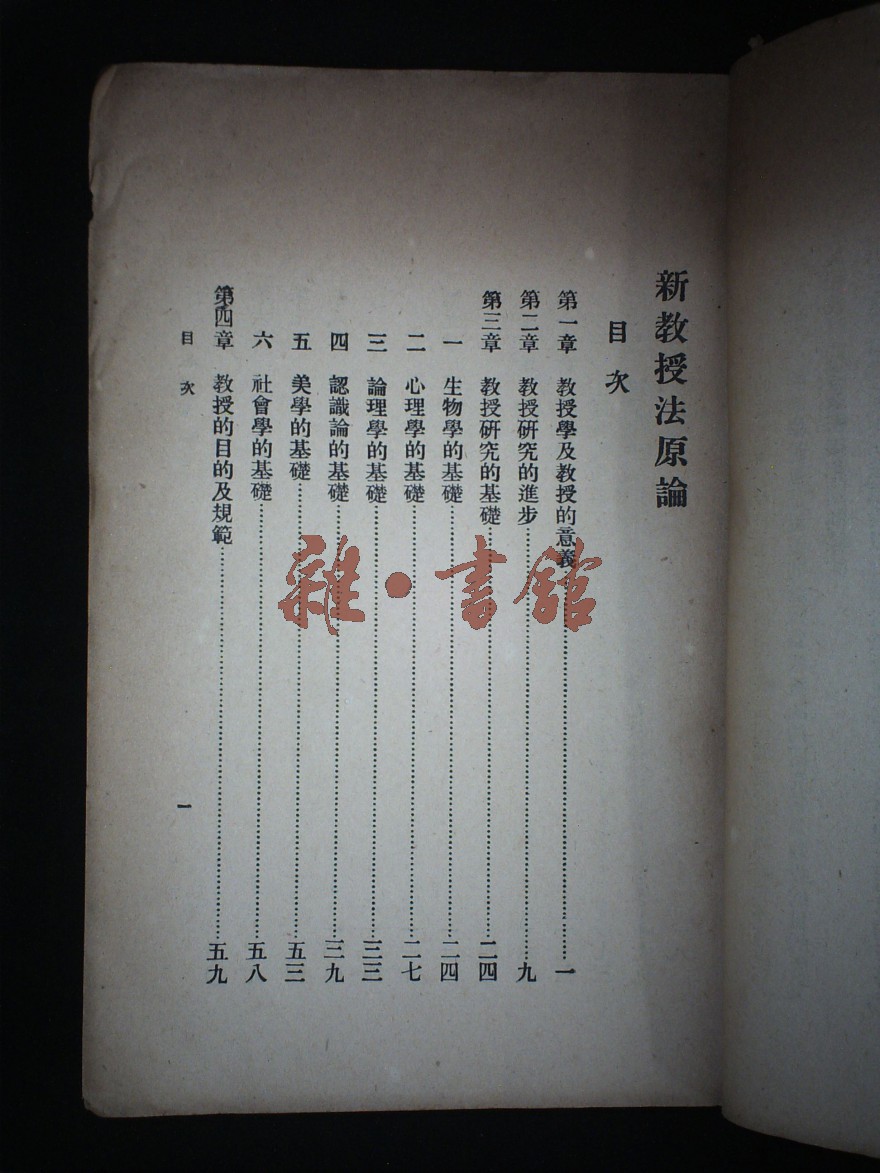 新教授法原論
目次
第一章 教授學及教授的意義……一
第二章 教授研究的進步……九
第三章 教授研究的基礎……二四
一 生物學的基礎……二四
二 心理學的基礎……二七
三 論理學的基礎……三三
四 認識論的基礎……三九
五 美學的基礎……五三
六 社會學的基礎……五八
第四章 教授的目的及規範……五九
目次 一
雜·書館